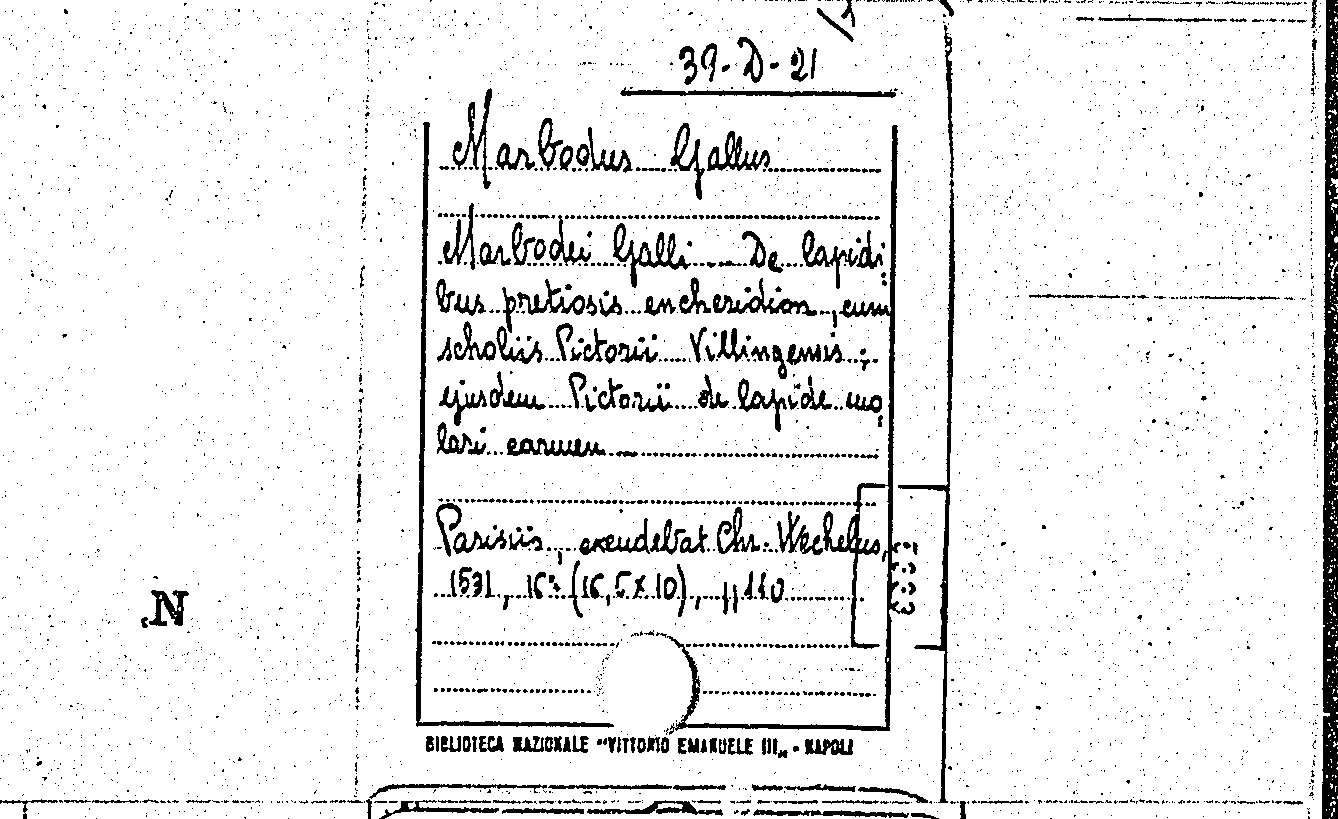 39-D-21
Marbodus Gallus
Marbodei Galli ... De lapidi-
bus pretiosis encheridion, cum
scholiis Pictorii Villingensis;
ejusdem Pictorii de lapide mo-
lari carmen
Parisiis, excudebat Chr. Wechelus,
1531, 16° (16,5 x 10), pp 110
BIBLIOTECA NAZIONALE "VITTORIO EMANUELE III„ - NAPOLI
N